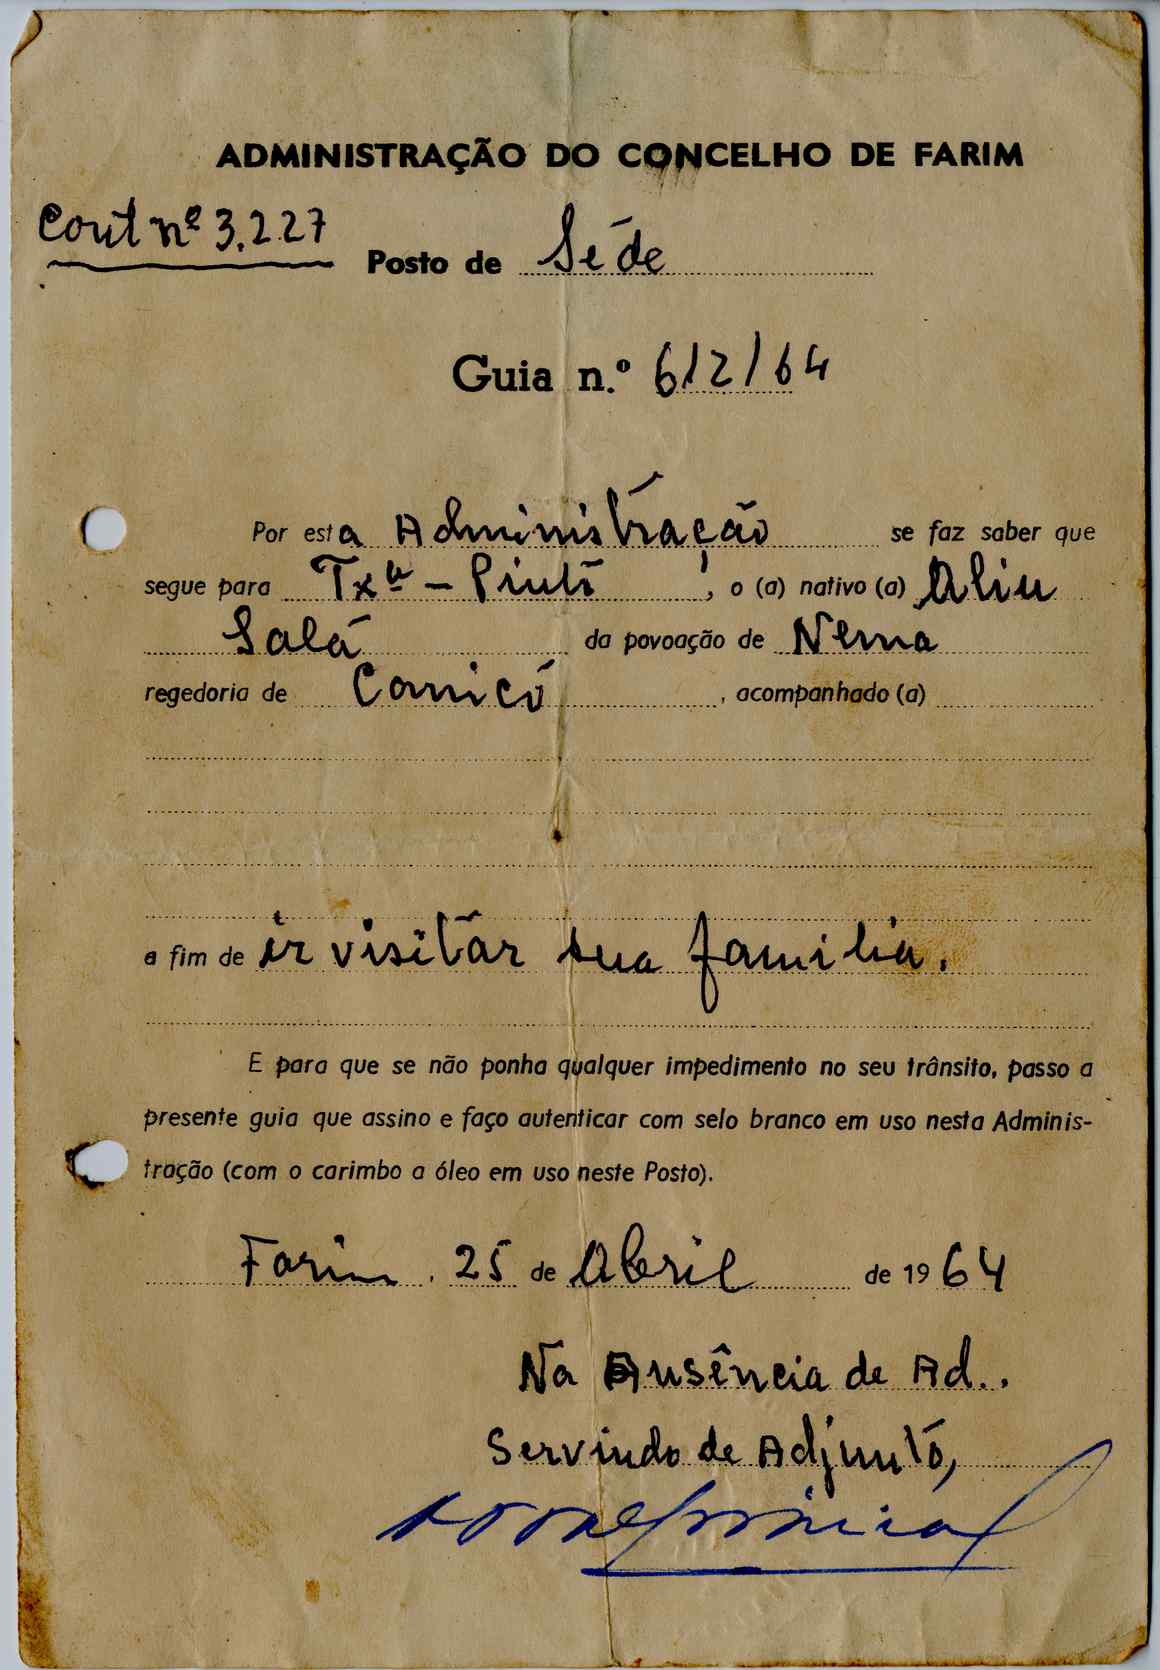 ADMINISTRAÇÃO DO CONCELHO DE FARIM
Cont nº 3.227
Posto de Séde
Guia n.º 612/64
Por esta Administração se faz saber que
segue para Txª - Pintó, o (a) nativo (a) Aliu
Salá da povoação de Nema
regedoria de Canicó, acompanhado (a)
a fim de ir visitar sua familia.
E para que se não ponha qualquer impedimento no seu trânsito, passo a
presente guia que assino e faço autenticar com selo branco em uso nesta Adminis-
tração (com o carimbo a óleo em uso neste Posto).
Farim, 25 de Abril de 1964
Na Ausência de Ad..
Servindo de Adjuntó,